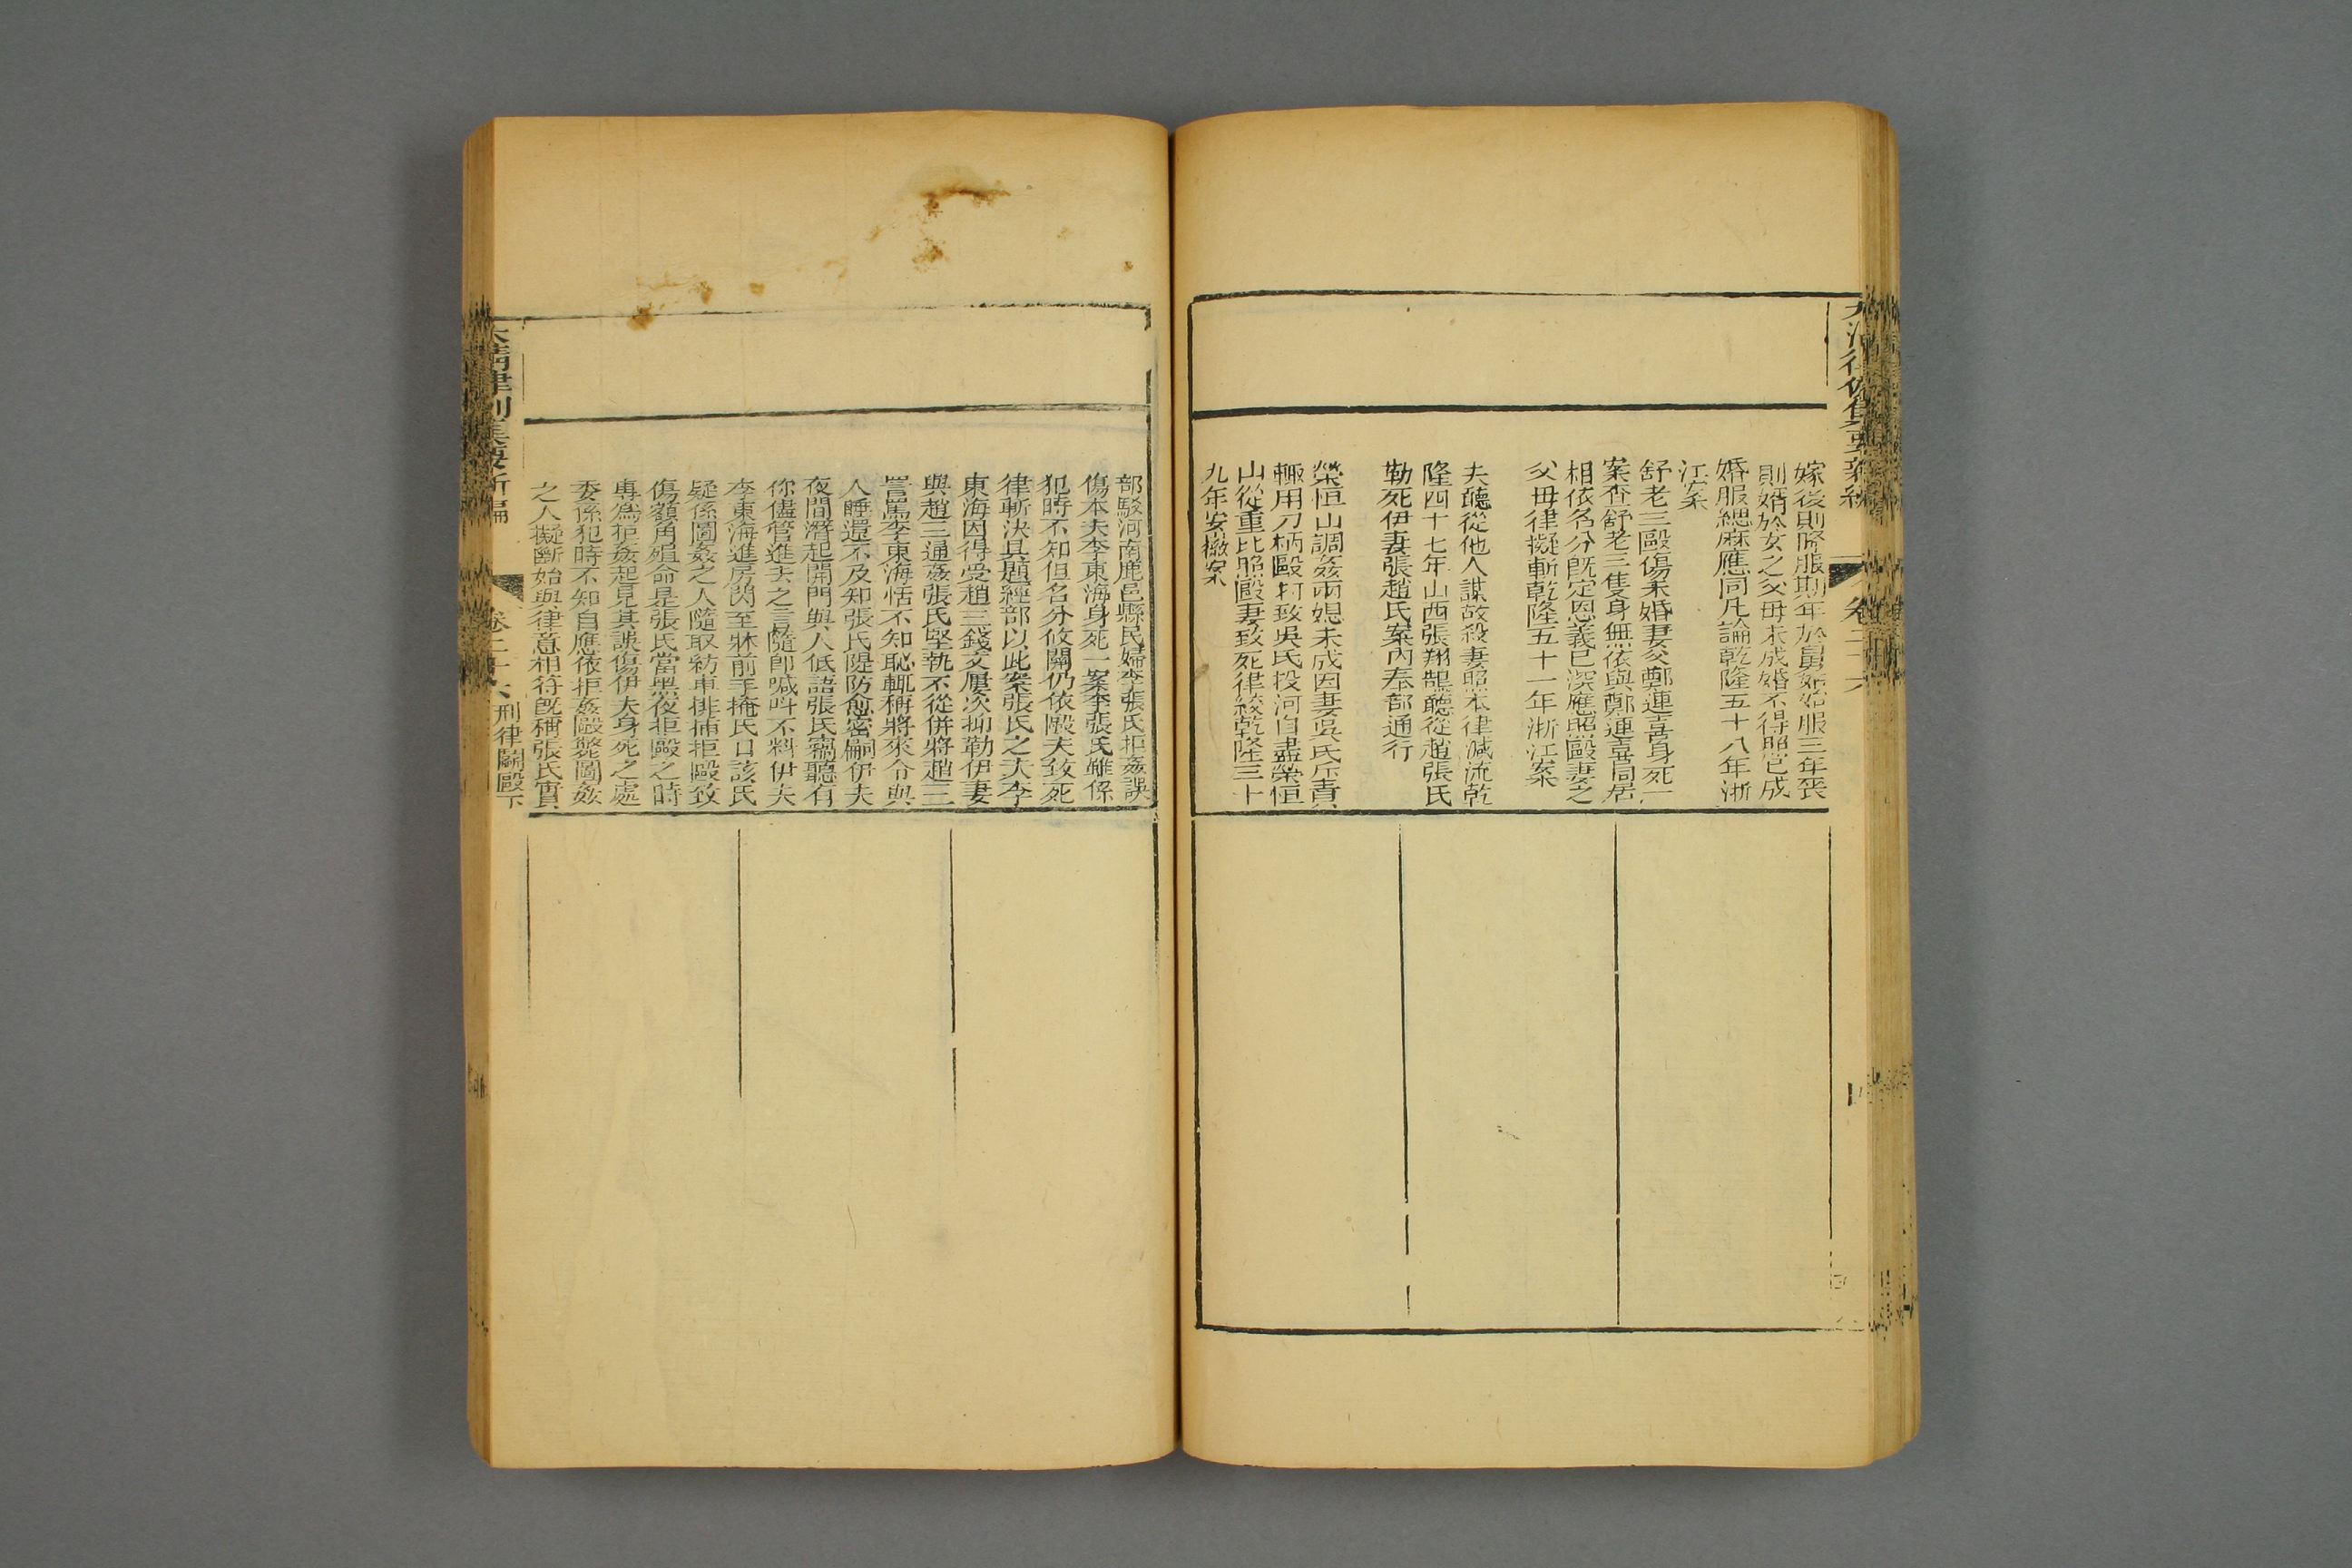 大清律例集要新編
卷二十六
四
嫁後則降服期年於舅姑始服三年喪
則婿於女之父母未成婚不得照已成
婚服緦麻應同凡論乾隆五十八年浙
江案
舒老三毆傷未婚妻父鄭連喜身死一
案查舒老三隻身無依與鄭連喜同居
相依名分旣定恩義已深應照毆妻之
父母律擬斬乾隆五十一年浙江案
夫聽從他人謀故殺妻照本律減流乾
隆四十七年山西張翔鵠聽從趙張氏
勒死伊妻張趙氏案內奉部通行
榮恒山調姦兩媳未成因妻吳氏斥責
輒用刀柄毆打致吳氏投河自盡榮恒
山從重比照毆妻致死律絞乾隆三十
九年安徽案
部駁河南鹿邑縣民婦李張氏拒姦誤
傷本夫李東海身死一案李張氏雖係
犯時不知但名分攸關仍依毆夫致死
律斬決具題經部以此案張氏之夫李
東海因得受趙三錢文屢次抑勒伊妻
與趙三通姦張氏堅執不從併將趙三
詈罵李東海恬不知恥輒稱將來令與
人睡還不及知張氏隄防愈密嗣伊夫
夜間潛起開門與人低語張氏竊聽有
你儘管進去之言隨卽喊呌不料伊夫
李東海進房閃至牀前手掩氏口該氏
疑係圖姦之人隨取紡車排捕拒毆致
傷額角殞命是張氏當黑夜拒毆之時
專為拒姦起見其誤傷伊夫身死之處
委係犯時不知自應依拒姦毆斃圖姦
之人擬斷始與律意相符旣稱張氏實
大清律例集要新編
卷二十六 刑律鬭毆下